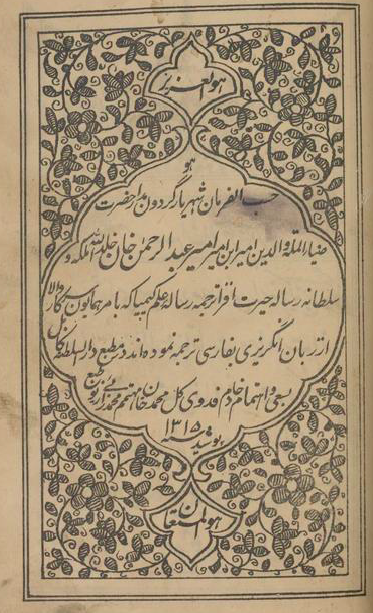 هوالعزیز
هو
حسب الفرمان شهریار گردون اِر حضرت
ضیاءالملة والدین امیر ابن امیر امیر عبدالرحمن خان خلد الله ملکه و
سلطانه رساله حیرت افزا ترجمه رساله علم کیمیا که بامر همایون سرکار والا
از زبان انگریزی بفارسی ترجمه نموده اند در مطبع دارالسلطنه کابل
بسعی و اهتمام خادم فدوی کل محمد خان مهتمم محمدزائی زیور طبع
پوشید سنه ۱۳۱۵
هوالمستعان